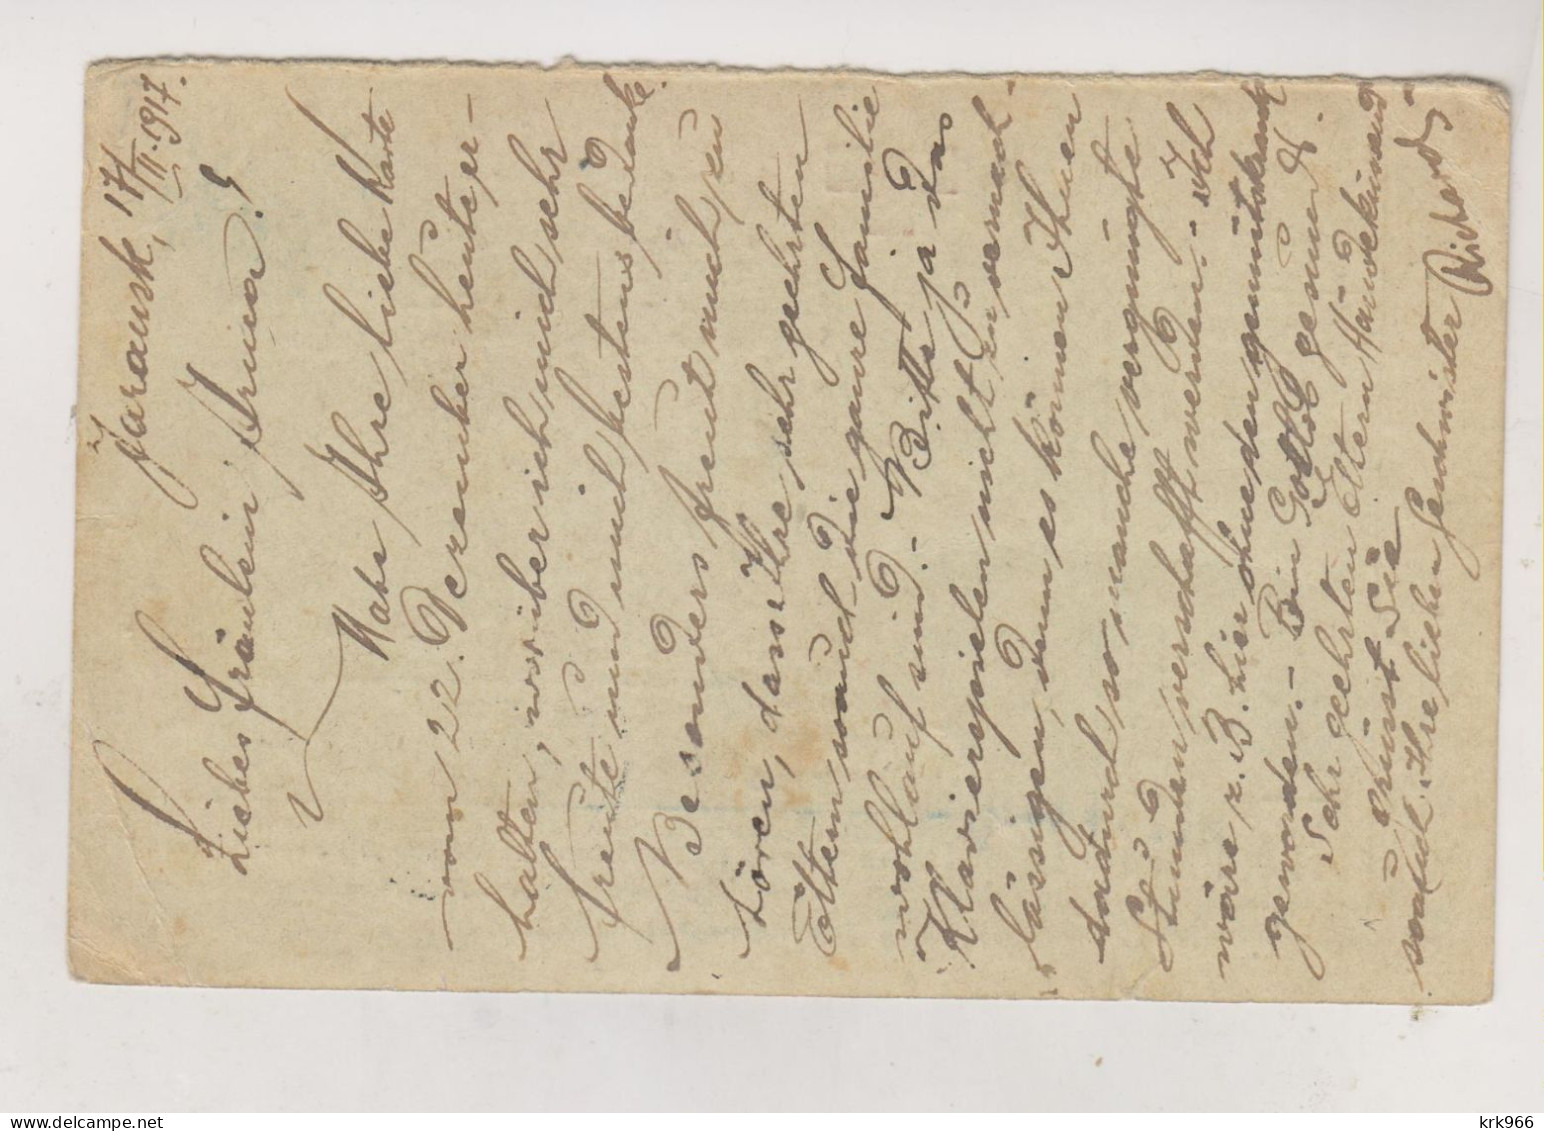 Jaransk, 17/II. 1917.
Liebes Fräulein Anna!
Habe Ihre liebe Karte
vom 22. Dezember heute er-
halten, worüber ich mich sehr
freute und mich bestens bedanke.
Besonders freut mich zu
hören, dass Ihre sehr geehrten
Eltern sowie die ganze Familie
wohlauf sind. - Bitte ja das
Klavierspielen nicht zu vernach-
lässigen, denn es können Ihnen
dadurch so manche vergnügte
Stunden verschafft werden. Ich
wäre z. B. hier ohne den gemütskrank
geworden. - Bin Gottlob gesund.
Sehr geehrten Eltern Handküsse
grüsst Sie
sowie Ihre lieben Geschwister Richard
krk966